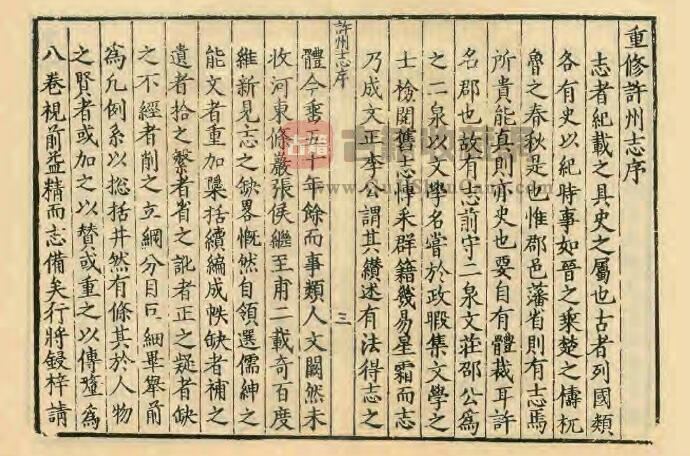 重修許州志序
志者紀載之具史之屬也古者列國類
各有史以紀時事如晉之乘楚之檮杌
魯之春秋是也惟郡邑藩省則有志焉
所貴能真則亦史也要自有體裁耳許
名郡也故有志前守二泉文莊邵公為
之二泉以文學名嘗於政暇集文學之
士檢閱舊志博采群籍幾易星霜而志
乃成文正李公謂其纘述有法得志之
許州志序
三
體今垂五十年餘而事類人文闕然未
收河東條巖張侯繼至甫二載奇百度
維新見志之缺畧慨然自領選儒紳之
能文者重加檃括續編成帙缺者補之
遺者拾之繁者省之訛者正之疑者缺
之不經者削之立綱分目巨細畢舉前
為凡例系以總括井然有條其於人物
之賢者或加之以賛或重之以傳釐為
八卷視前益精而志備矣行將鋟梓請